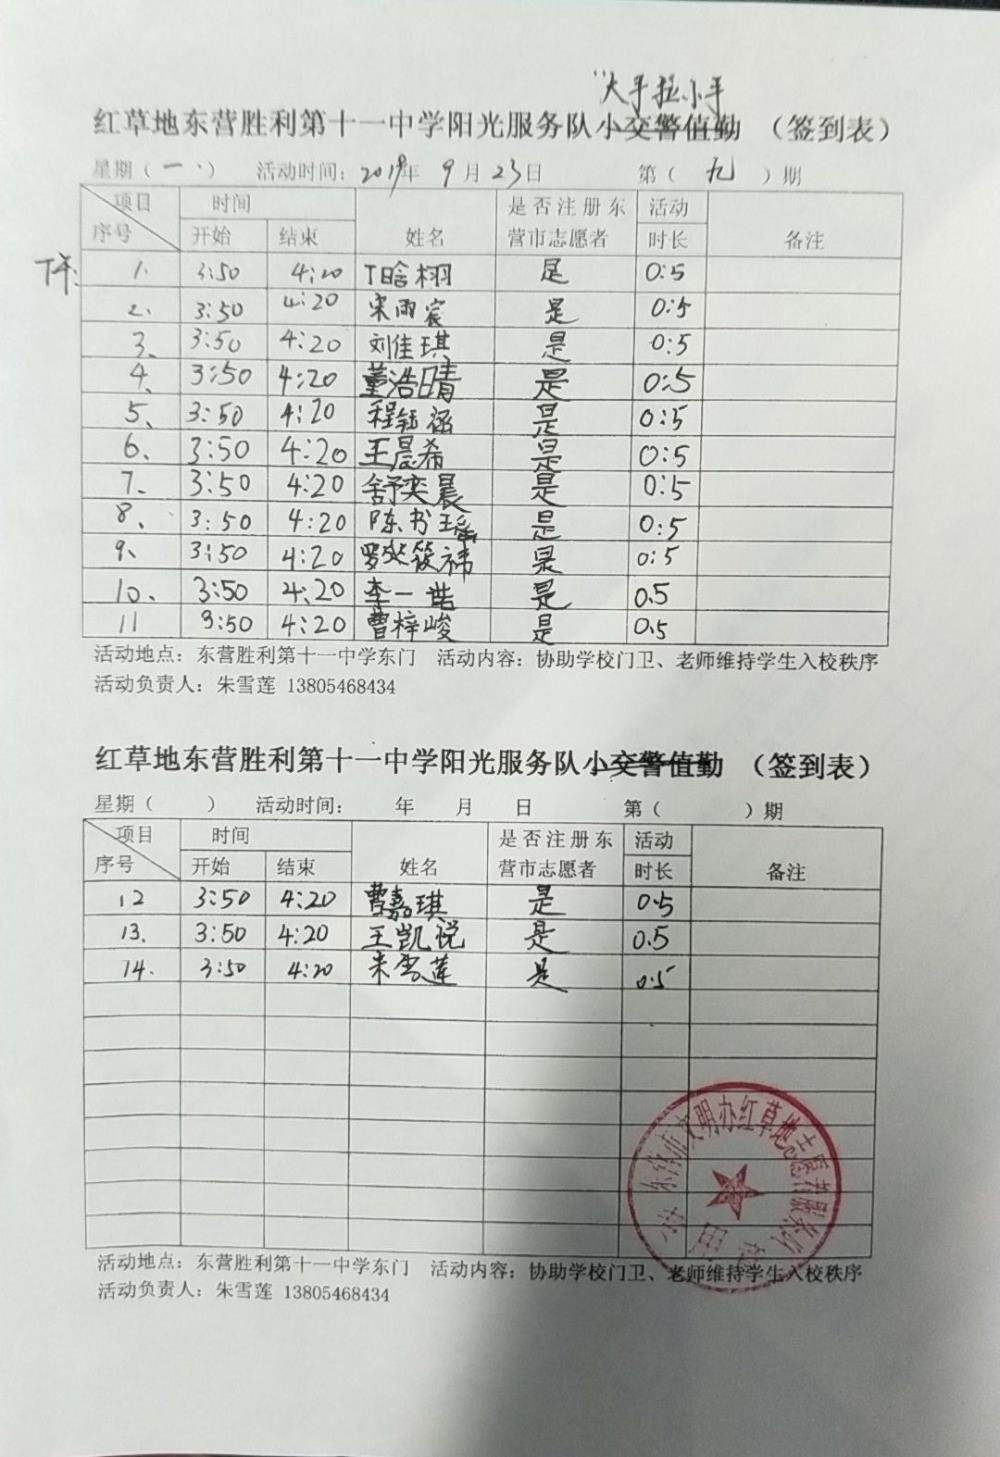 “大手拉小手
红草地东营胜利第十一中学阳光服务队小交警值勤 （签到表）
星期（一.） 活动时间：2019年 9月23日 第（九）期
项目 时间 是否注册东 活动
序号 开始 结束 姓名 营市志愿者 时长 备注
下午: 1. 3:50 4:20 丁晗栩 是 0:5
2. 3:50 4:20 宋雨宸 是 0:5
3、 3:50 4:20 刘佳琪 是 0:5
4、 3:50 4:20 董浩晴 是 0:5
5、 3:50 4:20 程钰涵 是 0:5
6、 3:50 4:20 王晨希 是 0:5
7、 3:50 4:20 舒奕晨 是 0:5
8、 3:50 4:20 陈书瑶 是 0:5
9、 3:50 4:20 筱祎 是 0:5
10、 3:50 4:20 李一喆 是 0.5
11 3:50 4:20 曹梓峻 是 0.5
活动地点：东营胜利第十一中学东门 活动内容：协助学校门卫、老师维持学生入校秩序
活动负责人：朱雪莲 13805468434
红草地东营胜利第十一中学阳光服务队小交警值勤 （签到表）
星期（ ） 活动时间： 年 月 日 第（ ）期
项目 时间 是否注册东 活动
序号 开始 结束 姓名 营市志愿者 时长 备注
12 3:50 4:20 曹嘉琪 是 0.5
13. 3:50 4:20 王凯悦 是 0.5
14. 3:50 4:20 朱雪莲 是 0.5
东营市文明办红草地志愿者服务队
活动地点：东营胜利第十一中学东门 活动内容：协助学校门卫、老师维持学生入校秩序
活动负责人：朱雪莲 13805468434